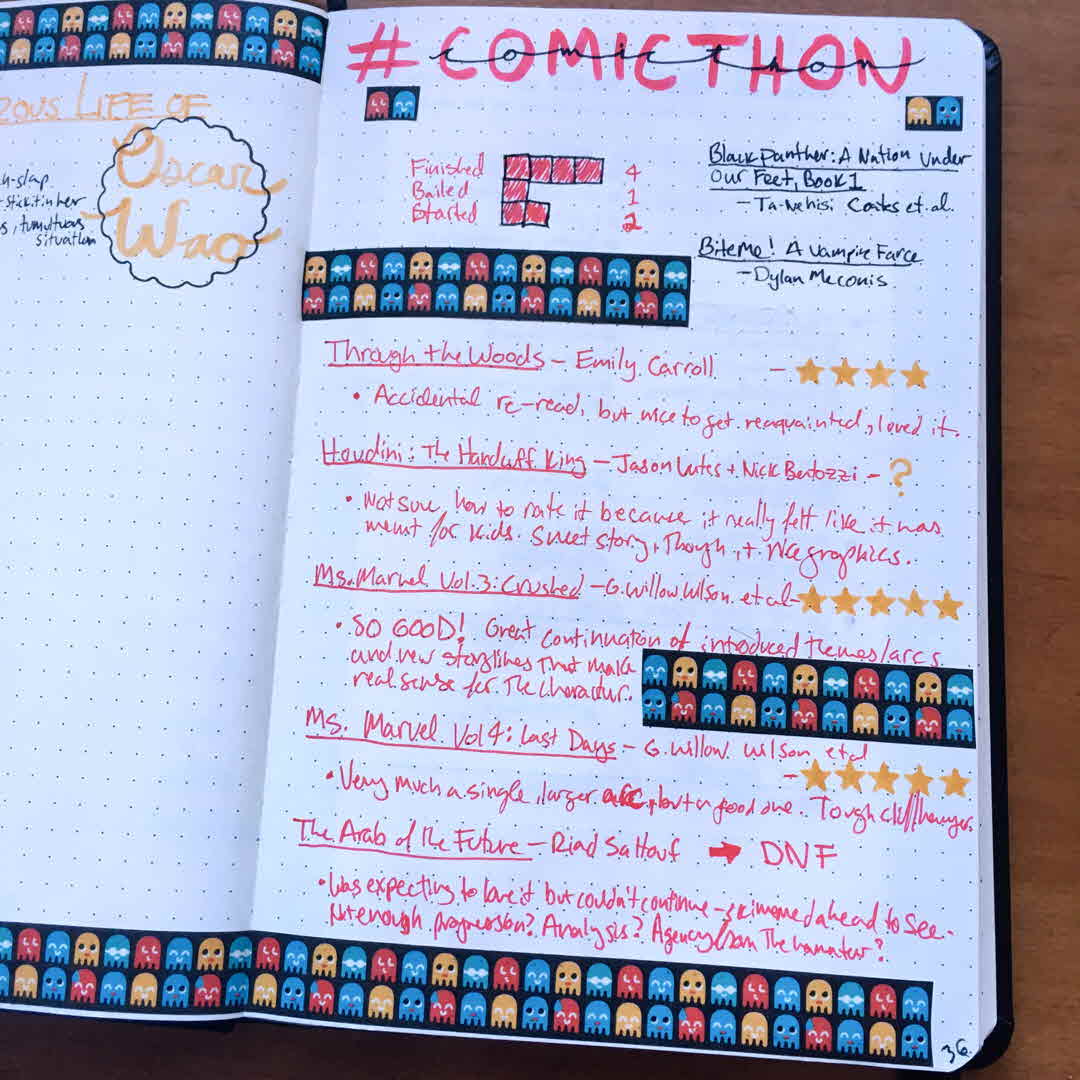 ZOUS LIFE OF
Oscar
Wao
-slap
-stick it in her
s, tumultuous
situation
# COMICTHON
comicthon
Finished 4
Bailed 1
Started 2
Black Panther: A Nation Under
Our Feet, Book 1
- Ta-Nehisi Coates et. al.
Bite Me! A Vampire Farce
- Dylan Meconis
Through the Woods - Emily Carroll -
• Accidental re-read, but nice to get reaquainted, loved it.
Houdini: The Handcuff King - Jason Lutes + Nick Bertozzi - ?
• Not sure how to rate it because it really felt like it was
meant for kids. Sweet story, though, + nice graphics.
Ms. Marvel Vol. 3: Crushed - G. Willow Wilson et al -
• SO GOOD! Great continuation of introduced themes/arcs
and new storylines that make
real sense for the character.
Ms. Marvel Vol 4: Last Days - G. Willow Wilson et al
-
• Very much a single, larger arc, but a good one. Tough cliffhanger.
The Arab of the Future - Riad Sattouf → DNF
• Was expecting to love it but couldn't continue - skimmed ahead to see.
Not enough progression? Analysis? Agency from the narrator?
36